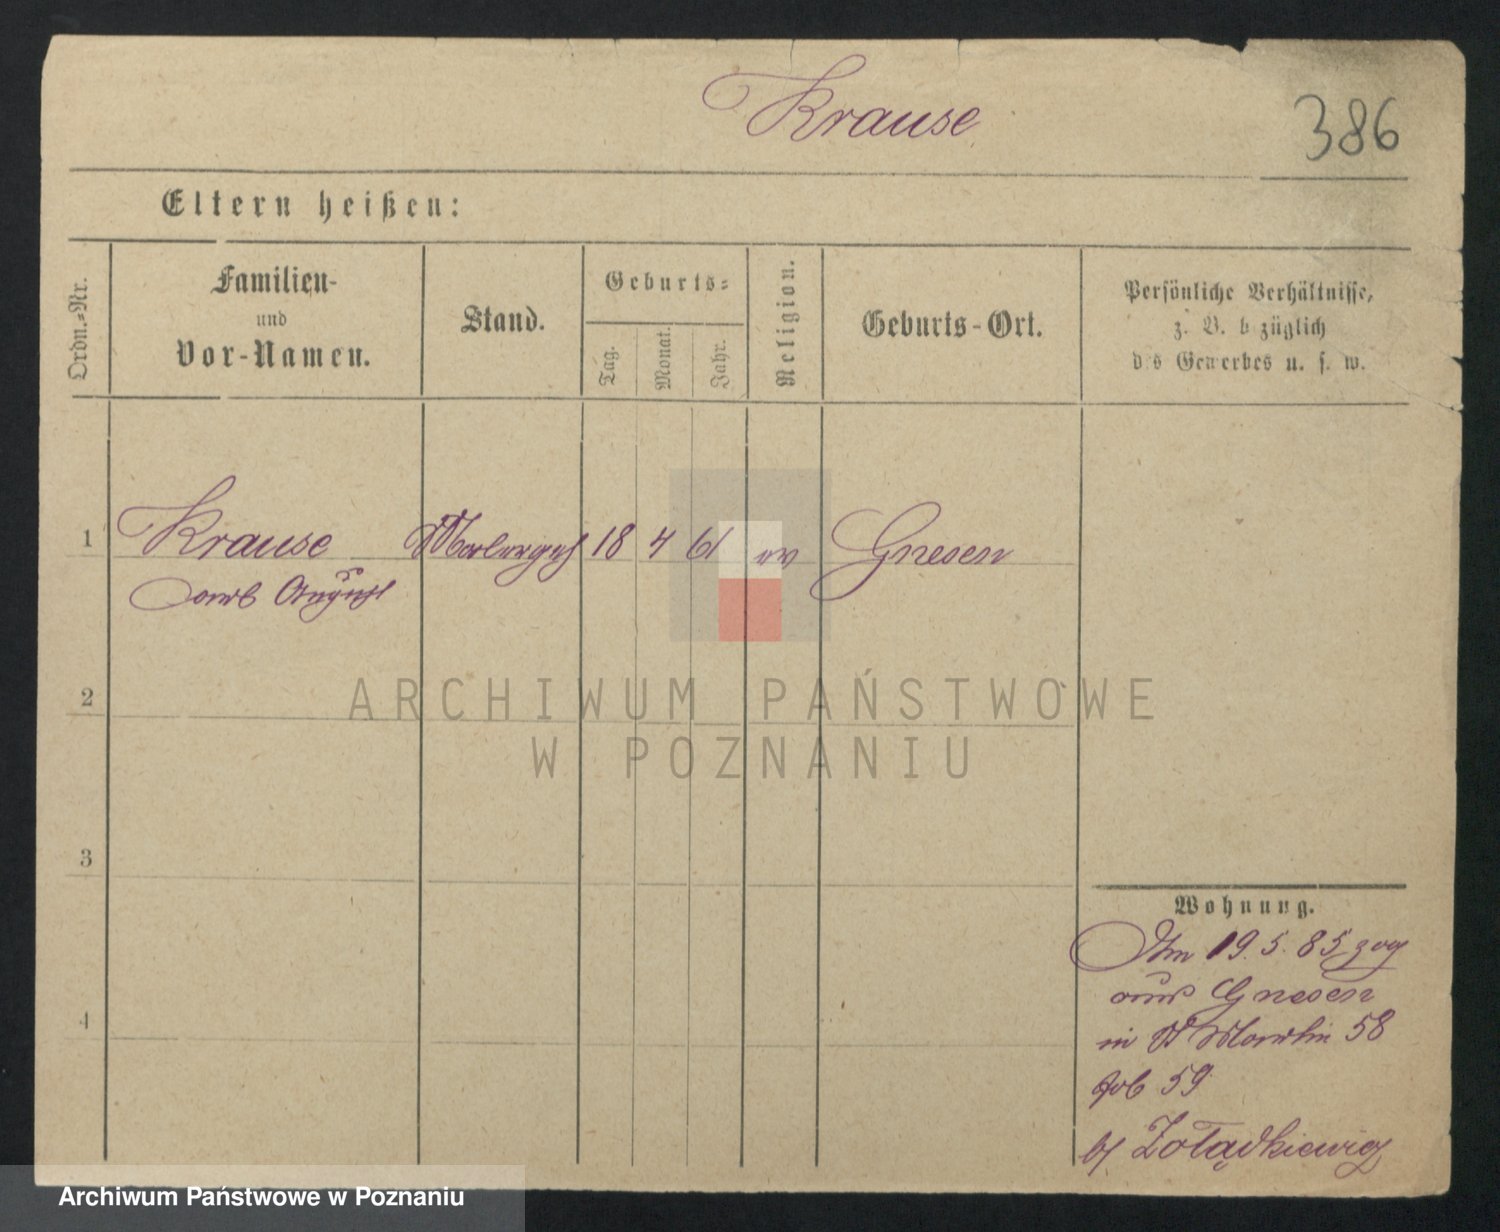 Krause
386
Eltern heißen:
Ordn.-Nr.
Familien-
und
Vor-Namen.
Stand.
Geburts-
Tag.
Monat.
Jahr.
Religion.
Geburts-Ort.
Persönliche Verhältnisse,
z. B. bezüglich
des Gewerbes u. s. w.
1 Krause Malergeh 18 4 61 ev Gnesen
Carl August
2
3
4
Wohnung.
Am 19. 5. 85 zog
aus Gnesen
in St Martin 58
59
b/ Żołądkiewicz
ARCHIWUM PAŃSTWOWE
W POZNANIU
Archiwum Państwowe w Poznaniu